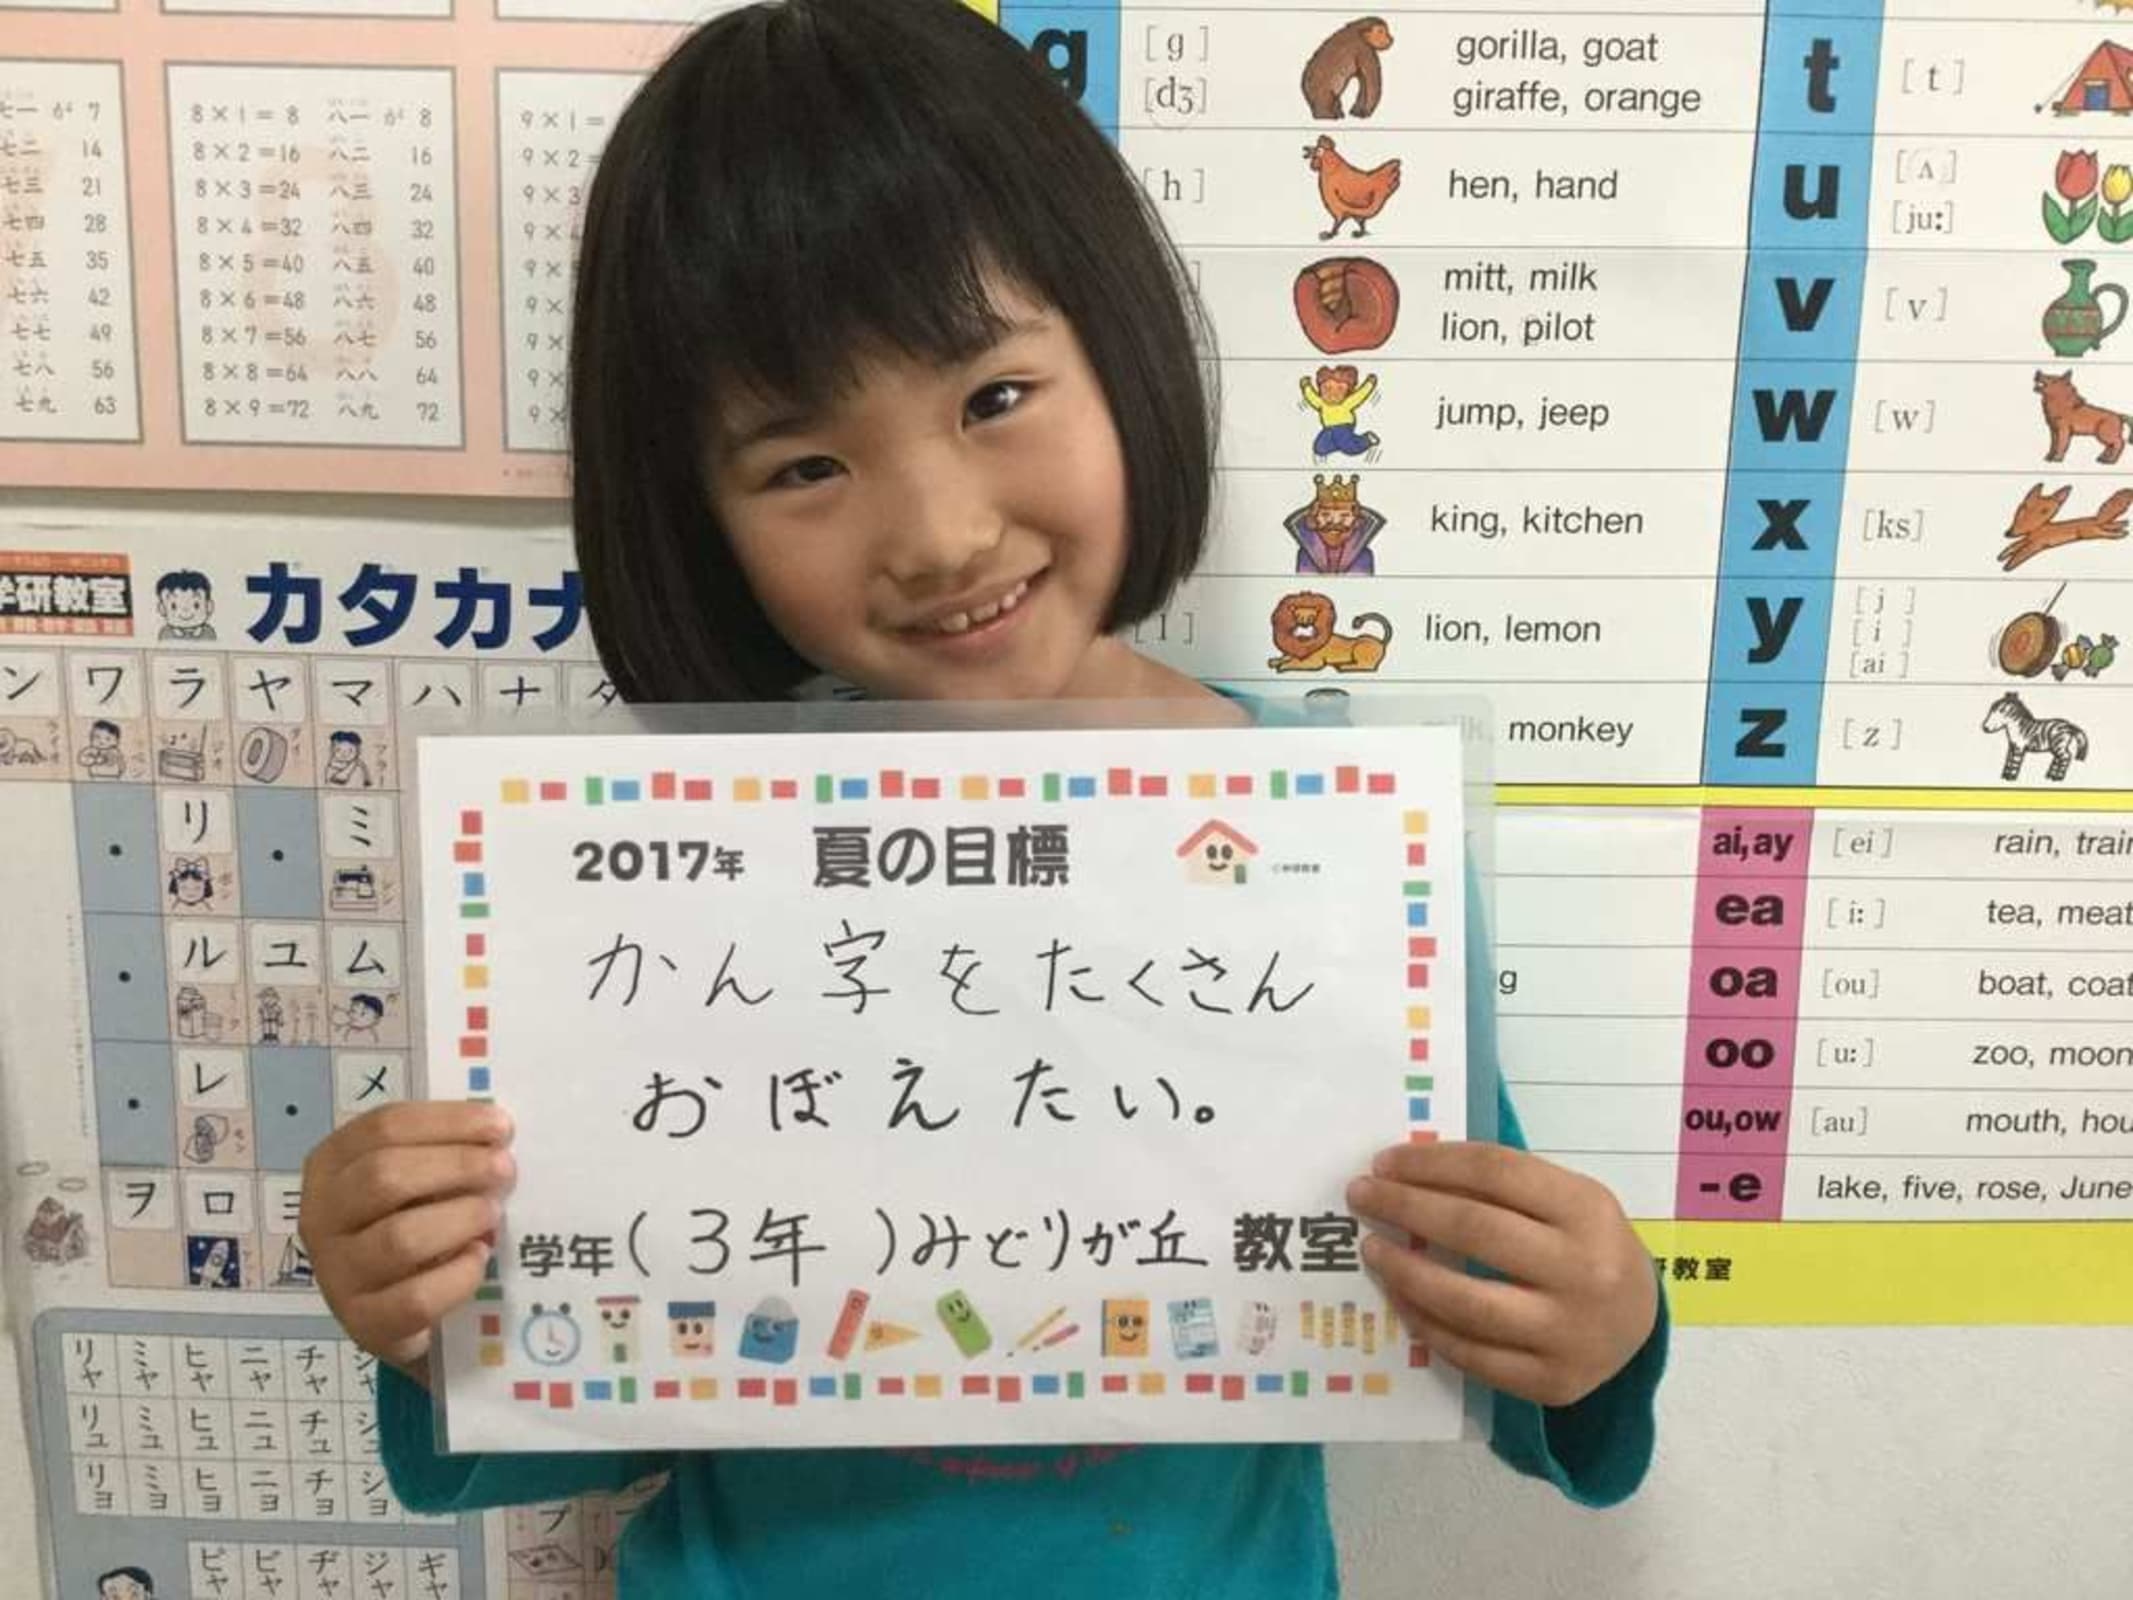 七一 が 7
七二 14
七三 21
七四 28
七五 35
七六 42
七七 49
七八 56
七九 63
8×1=8 八一 が 8
8×2=16 八二 16
8×3=24 八三 24
8×4=32 八四 32
8×5=40 八五 40
8×6=48 八六 48
8×7=56 八七 56
8×8=64 八八 64
8×9=72 八九 72
9×1=
9×2=
9×3
g [g] gorilla, goat
[dʒ] giraffe, orange
[h] hen, hand
mitt, milk
lion, pilot
jump, jeep
king, kitchen
[l] lion, lemon
monkey
t [t]
u [ʌ]
[ju:]
v [v]
w [w]
x [ks]
y [j]
[i]
[ai]
z [z]
ai,ay [ei] rain, train
ea [i:] tea, meat
oa [ou] boat, coat
oo [u:] zoo, moon
ou,ow [au] mouth, hou
-e lake, five, rose, June
研教室
学研教室
カタカナ
ン ワ ラ ヤ マ ハ ナ タ
リ ミ
ル ユ ム
レ メ
ヲ ロ ヨ
リャ ミャ ヒャ ニャ チャ シャ
リュ ミュ ヒュ ニュ チュ シュ
リョ ミョ ヒョ ニョ チョ ショ
ピャ ビャ ヂャ ジャ ギャ
プ
2017年 夏の目標
かん字をたくさん
おぼえたい。
学年(3年)みどりが丘 教室